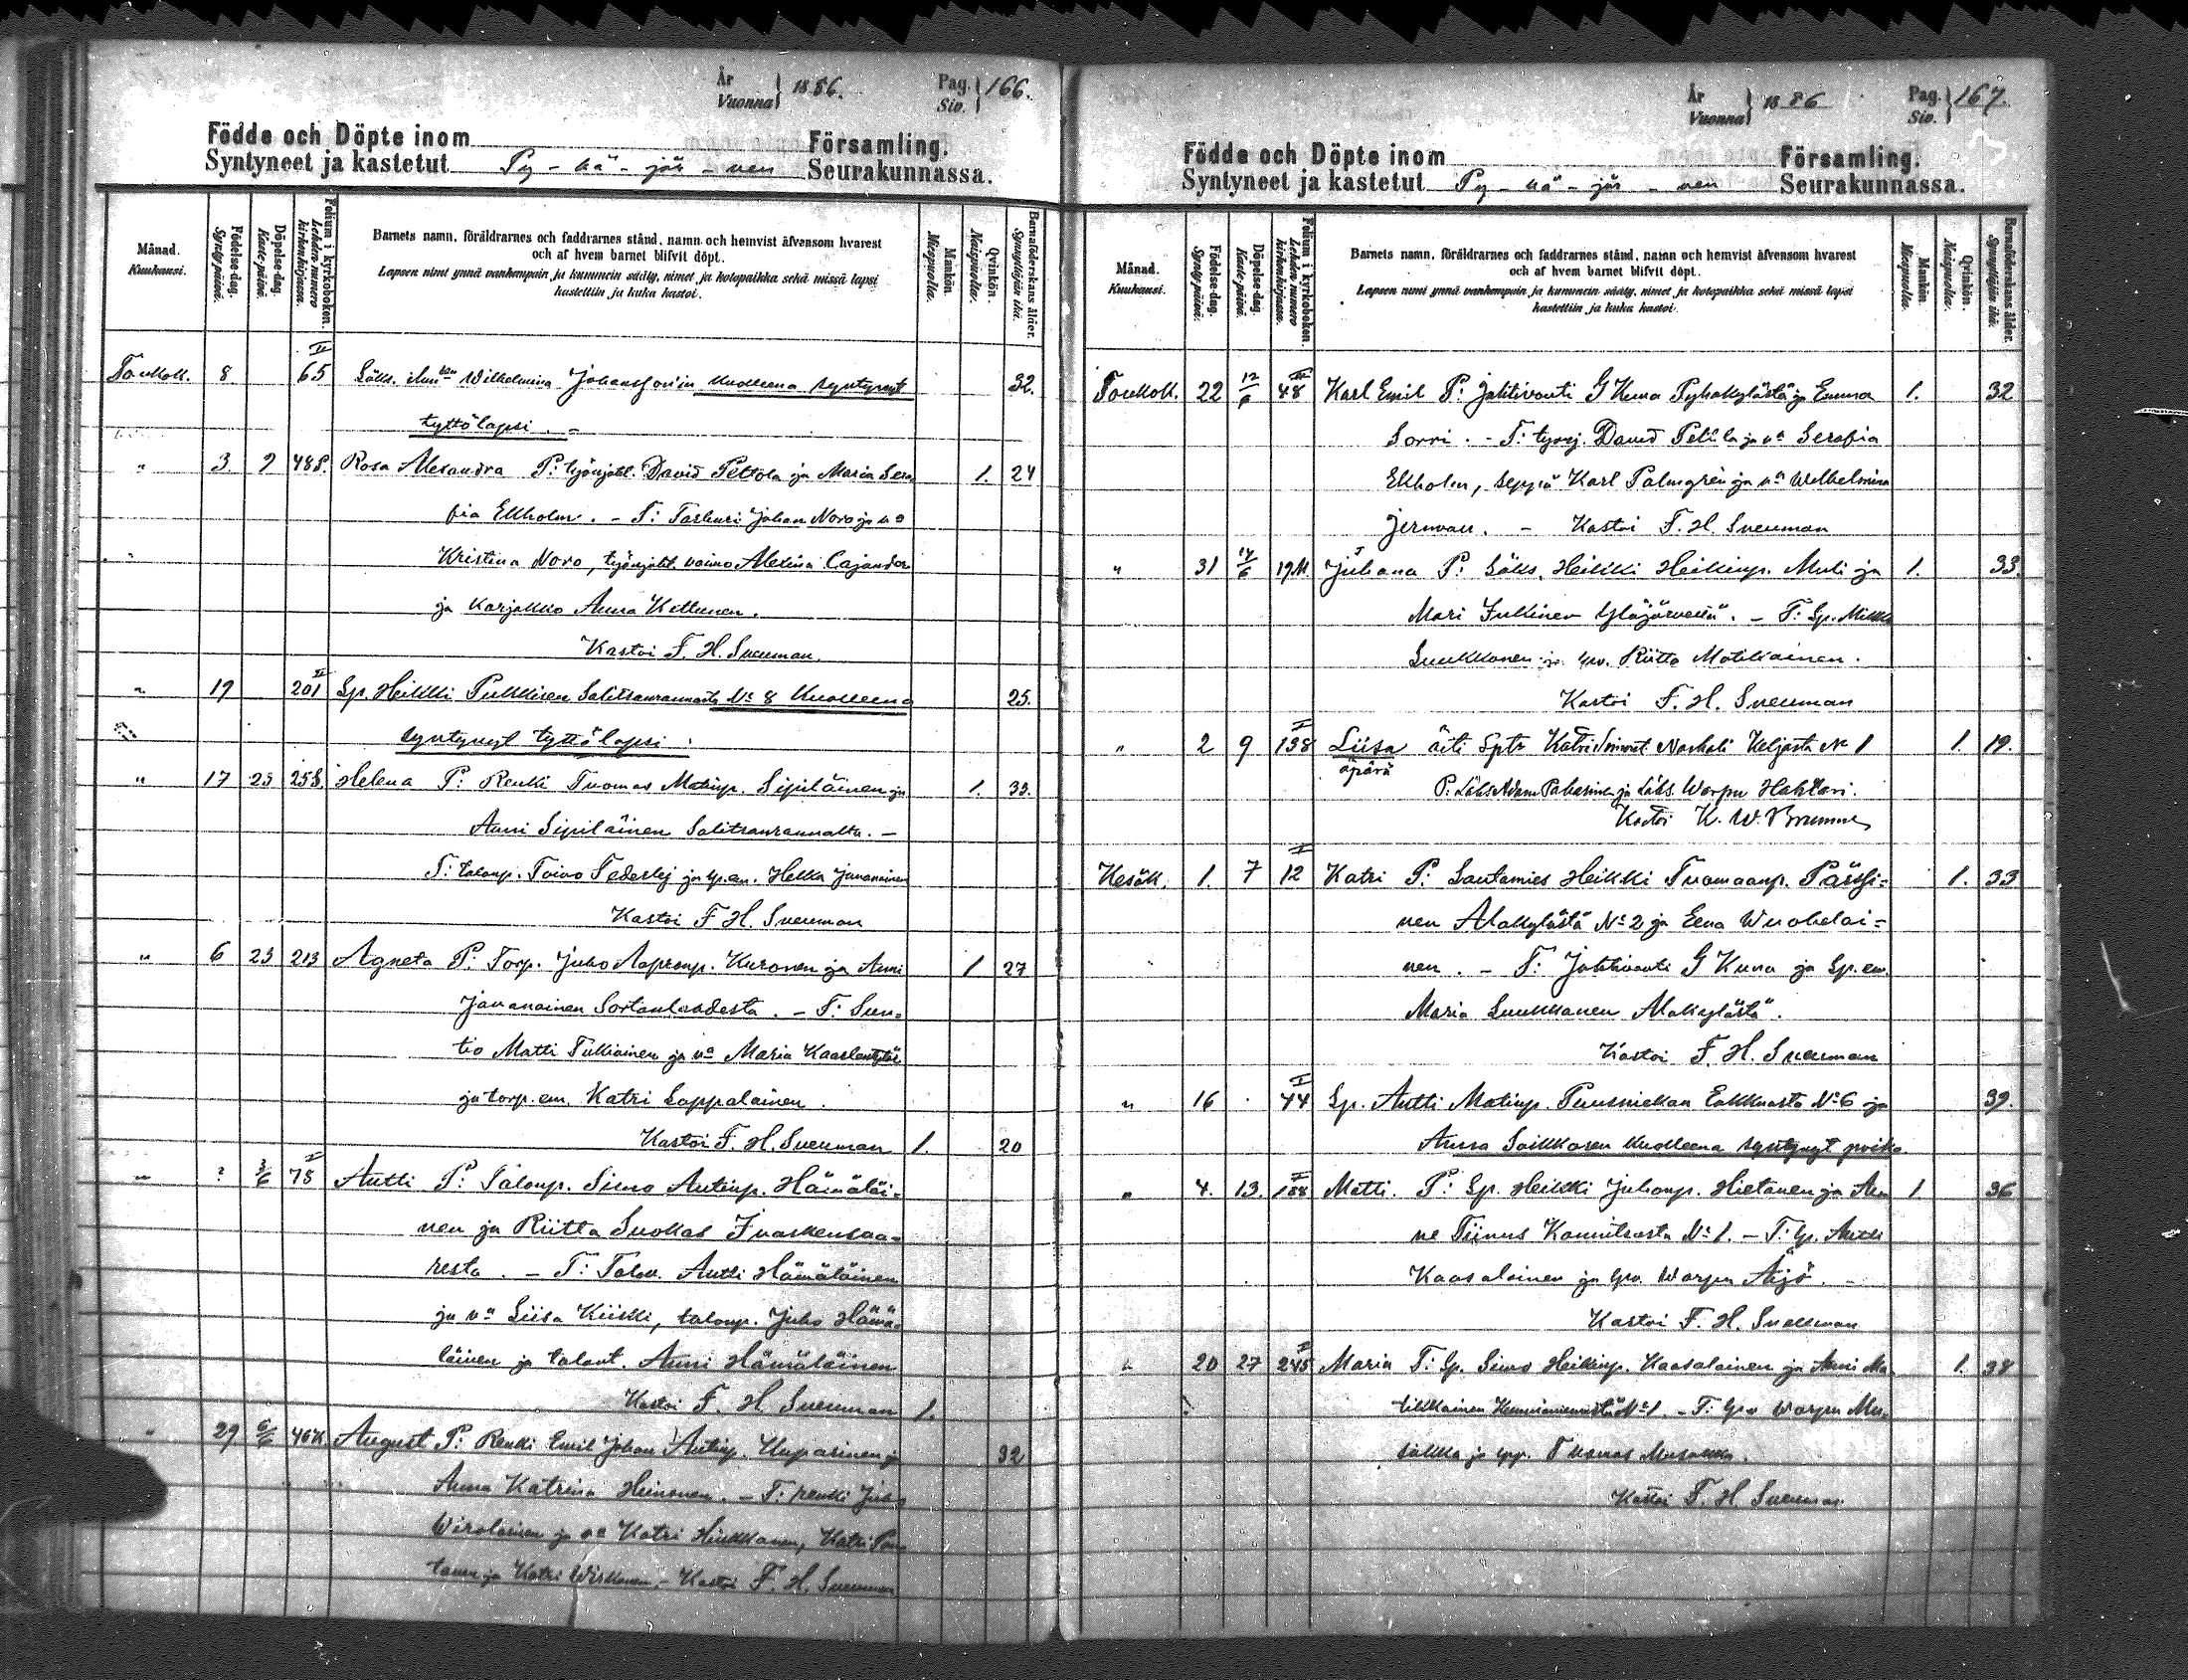 År
Vuonna } 1886. Pag. Siv. } 166.
Födde och Döpte inom Församling.
Syntyneet ja kastetut Py-hä-jär-ven Seurakunnassa.
Månad. Kuukausi.
Födelse-dag. Synty-päivä.
Döpelse-dag. Kaste-päivä.
Folium i kyrkoboken. Lehden numero kirkonkirjassa.
Barnets namn, föräldrarnes och faddrarnes stånd, namn och hemvist äfvensom hvarest
och af hvem barnet blifvit döpt.
Lapsen nimi ynnä vanhempain ja kummein sääty, nimet ja kotopaikka sekä missä lapsi
kastettiin ja kuka kastoi.
Mankön. Miespuolta.
Qvinkön. Naispuolta.
Barnaföderskans ålder. Synnyttäjän ikä.
Toukok. 8 IV 65 Wilhelmina kuolleena syntynyt 32.
tyttölapsi. -
" 3 9 488. Rosa Alexandra P: työnjoht. David Pettola ja Maria Sera 1. 24
fia Ekholm. - T: Johan Novo ja va
Kristina Novo, työnjoht. vaimo Cajander
ja karjakko Anna Kettunen.
Kastoi F. H. Sneuman.
" 19 II 201 Sp. Heikki Pukkisen Salitsanrannasta No 8 kuolleena 25.
syntynyt tyttölapsi.
" 17 23 258. Helena P: Renki Tuomas Matinp. Sipiläinen ja 1. 33.
Anni Sipiläinen Salitsanrannalta. -
T: talonp. Toivo Federlej ja sp.em. Helka Javanainen
Kastoi F H. Sneuman
" 6 23 213 Agneta P: Torp. Juho Aapronp. Kuronen ja Anni 1 27
Javanainen Sortanlahdesta. - T: Sun-
tio Matti Tukiainen ja va Maria Kaarlentytär
ja torp. em. Katri Lappalainen.
Kastoi F. H. Sneuman 1. 20
" ? 3/6 I 78 Antti P: Talonp. Simo Antinp. Hämäläi-
nen ja Riitta Suokas Ivaskensaa-
resta. - T: Talon. Antti Hämäläinen
ja va Liisa Kiiskki, talonp. Juho Hämä-
läinen ja talont. Anni Hämäläinen
Kastoi F. H Sneuman 1.
" 29 6/6 46K August P: Renki Emil Johan Antinp. Kuparinen ja 32
Anna Katrina Heinonen. - T: renki Juho
Wirolainen ja va Katri Hinkkanen, Katri
ja Katri Wirkonen. - Kastoi F. H. Sneuman
År
Vuonna } 1886 Pag. Siv. } 167.
Födde och Döpte inom Församling.
Syntyneet ja kastetut Py-hä-jär-ven Seurakunnassa.
Månad. Kuukausi.
Födelse-dag. Synty-päivä.
Döpelse-dag. Kaste-päivä.
Folium i kyrkoboken. Lehden numero kirkonkirjassa.
Barnets namn, föräldrarnes och faddrarnes stånd, namn och hemvist äfvensom hvarest
och af hvem barnet blifvit döpt.
Lapsen nimi ynnä vanhempain ja kummein sääty, nimet ja kotopaikka sekä missä lapsi
kastettiin ja kuka kastoi.
Mankön. Miespuolta.
Qvinkön. Naispuolta.
Barnaföderskans ålder. Synnyttäjän ikä.
Toukok. 22 12/6 48 Karl Emil P: Jahtivouti G Kuna Pyhäkylästä ja Emma 1. 32
Sorri. - T: David Pettola ja va Serafia
Ekholm, seppä Karl Palmgrén ja va Wilhelmina
Jernvall. - Kastoi F. H. Sneuman
" 31 14/6 19M Juhana P: Löks. Heikki Heikinp. Muli ja 1. 33.
Mari Inkinen Yläjärveltä. - T: Sp. Mikko
Luukkonen ja Hpv. Riitta Matikainen.
Kastoi F. H. Sneuman
" 2 9 I 138 Liisa äiti Sptr Katri Naskali Keljasta No 1 1. 19.
äpärä
P: Löks Adam Pakarinen ja Löks. Warpu Hahtari.
Kastoi K. W. Brummer
Kesäk. 1. 7 I 12 Katri P: Lautamies Heikki Tuomaanp. Pärssi- 1. 33
nen Alakylästä No 2 ja Eeva Wuohelai-
nen. - T: Jahtivouti G Kuna ja Sp. em.
Maria Luukkanen Alakylästä.
Kastoi F. H. Sneuman
" 16 I 44 Sp. Antti Matinp. Puusniekan No 6 ja 39.
Anna Saikkosen kuolleena syntynyt poika.
" 4. 13. II 188 Matti. P: Sp. Heikki Juhonp. Hietanen ja An 1. 36
ne Tiinus Konnitsasta No 1. - T: Sp. Antti
Kaasalainen ja Hpv. Warpu Äijö. -
Kastoi F. H. Sneuman
" 20 27 I 245 Maria T: Sp. Simo Heikinp. Kaasalainen ja Anni Ma- 1. 38
tikkainen No 1. - T: Hpv Warpu Mu-
sakka ja spp. Tuomas Musakka.
Kastoi F. H Sneuman